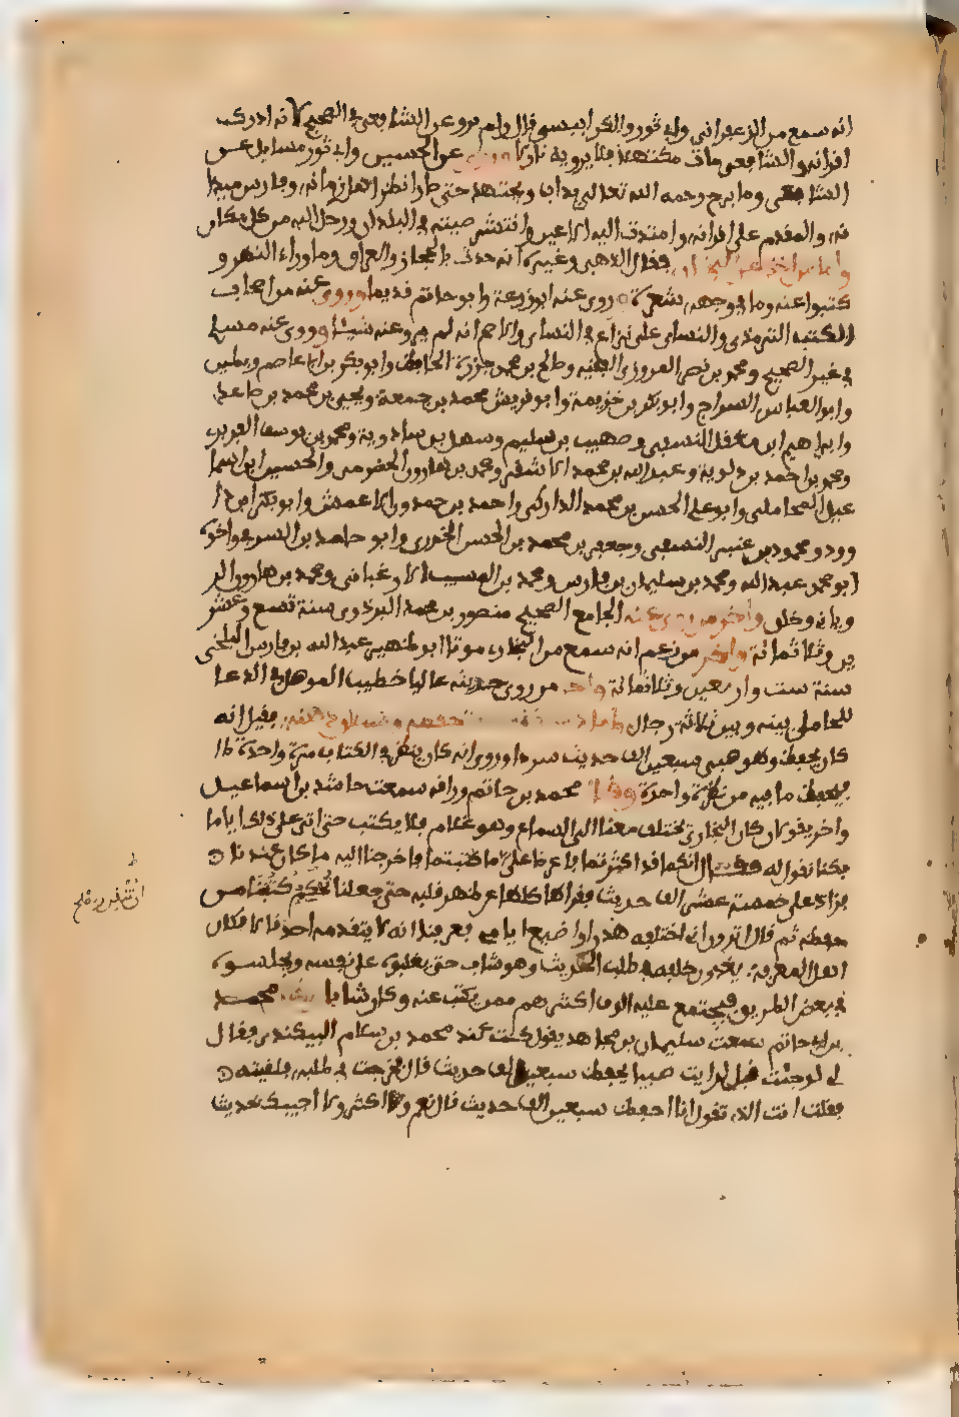 انه سمع من الزعفراني وابي ثور والكرابيسي قال ولم يرو عن الشافعي في الصحيح لانه ادرك
اقرانه والشافعي مات مكتهلا فلا يرويه نازلا وروى عن الحسين وابي ثور مسايل عن
الشافعي وما برح رحمه الله تعالى يداب ويجتهد حتى صار انظر اهل زمانه وفارس ميدا
نه والمقدم على اقرانه وامتدت اليه الاعين وانتشر صيته في البلدان ورحل اليه من كل مكان
واما من اخذ عن البخاري فقال الذهبي وغيره انه حدث بالحجاز والعراق وما وراء النهر و
كتبوا عنه وما في وجهه شعرة روى عنه ابو زرعة وابو حاتم قديما وروى عنه من اصحاب
الكتب الترمذي والنساي على نزاع في النساي والاصح انه لم يرو عنه شيئا وروى عنه مسلم
في غير الصحيح ومحمد بن نصر المروزي الفقيه وصالح بن محمد جزرة الحافظ وابو بكر بن ابي عاصم ومطين
وابو العباس السراج وابو بكر بن خزيمة وابو قريش محمد بن جمعة ويحيى بن محمد بن صاعد
وابراهيم ابن معقل النسفي وصهيب بن سليم وسهل بن شادوية ومحمد بن يوسف الفربري
ومحمد بن احمد بن دلوية وعبد الله بن محمد الاشقر ومحمد بن هارون الحضرمي والحسين ابن اسما
عيل المحاملي وابو علي الحسن بن محمد الداركي واحمد بن حمدون الاعمش وابو بكر ابن دا
وود ومحمود بن عنبر النسفي وجعفر بن محمد بن الحسن الجزري وابو حامد بن الشرقي واخوه
ابو محمد عبد الله ومحمد بن سليمان بن فارس ومحمد بن المسيب الارغياني ومحمد بن هارون الر
وياني وخلق واخر من روى عنه الجامع الصحيح منصور بن محمد البزدوي سنة تسع وعشر
ين وثلاثمائة واخر من زعم انه سمع من البخاري موتا ابو ظهير عبد الله بن فارس البلخي
سنة ست واربعين وثلاثمائة واخر من روى حديثه عاليا خطيب الموصل في الدعا
للمحاملي بينه وبين ثلاثة رجال واما فقيل انه
كان يحفظ وهو صبي سبعين الف حديث سردا وروى انه كان ينظر في الكتاب مرة واحدة فا
فيحفظ ما فيه من نظرة واحدة وقال محمد بن حاتم وراقه سمعت حاشد بن اسماعيل
واخر يقولان كان البخاري يختلف معنا الى السماع وهو غلام فلا يكتب حتى اتى على ذلك اياما
فكنا نقول له فقال انكما قد اكثرتما فاعرضا علي ما كتبتما فاخرجنا اليه ما كان عندنا
فزاد على خمسة عشر الف حديث فقراها كلها عن ظهر قلبه حتى جعلنا نحكم كتبنا من
حفظه ثم قال اترون اني اختلف هدرا واضيع ايامي فعرفنا انه لا يتقدمه احد قالا فكان
اهل المعرفة يغدون خلفه في طلب الحديث وهو شاب حتى يغلبوه على نفسه ويجلسوه
في بعض الطريق فيجتمع عليه الوف اكثرهم ممن يكتب عنه وكان شابا محمد
بن ابي حاتم سمعت سليمان بن مجاهد يقول كنت عند محمد بن سلام البيكندي فقال
لي لو جئت قبل لرايت صبيا يحفظ سبعين الف حديث قال فخرجت في طلبه فلقيته
فقلت انت الذي تقول انا احفظ سبعين الف حديث قال نعم واكثر ولا اجيبك بحديث